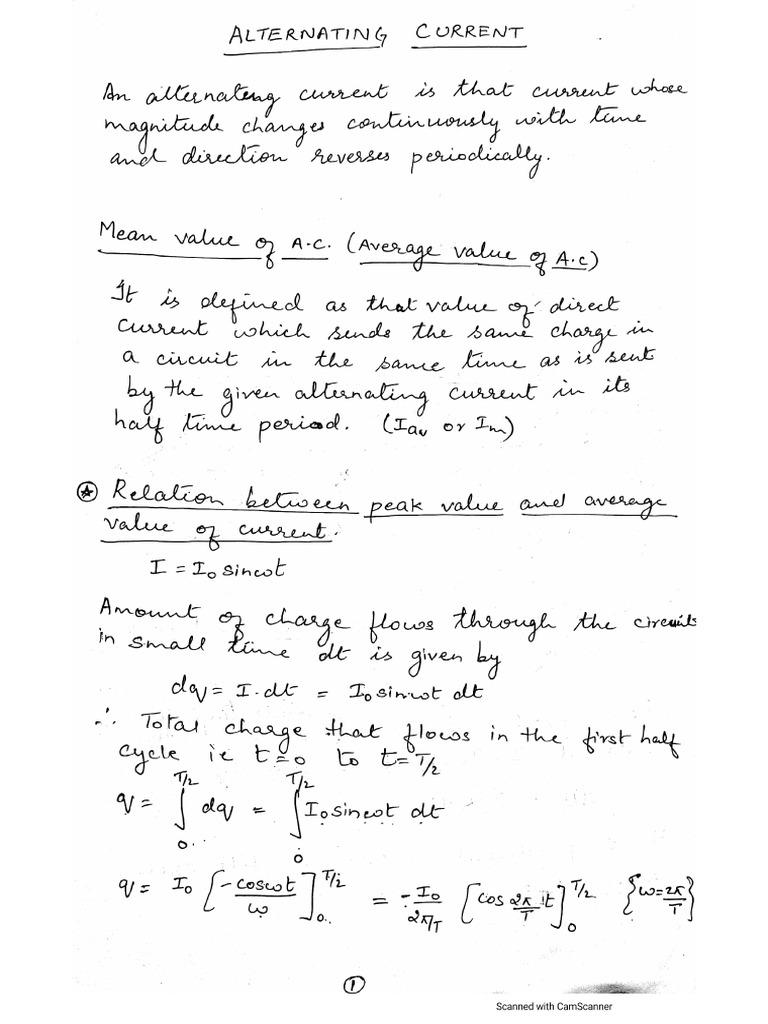 ALTERNATING CURRENT
An alternating current is that current whose
magnitude changes continuously with time
and direction reverses periodically.
Mean value of A.C. (Average value of A.c)
It is defined as that value of direct
current which sends the same charge in
a circuit in the same time as is sent
by the given alternating current in its
half time period. (Iav or Im)
⍟ Relation between peak value and average
value of current.
I = I₀ sinωt
Amount of charge flows through the circuits
in small time dt is given by
dq = I.dt = I₀ sinωt dt
∴ Total charge that flows in the first half
cycle ie t=0 to t=T/2
q = ∫₀^{T/2} dq = ∫₀^{T/2} I₀ sinωt dt
q = I₀ [-cosωt/ω]₀^{T/2} = -I₀/(2π/T) [cos 2π/T t]₀^{T/2} {ω=2π/T}
1
Scanned with CamScanner